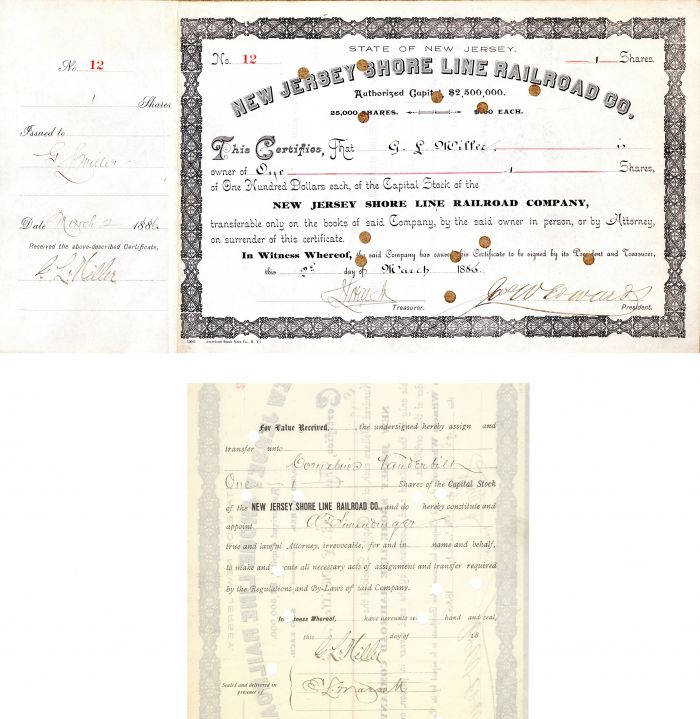 No. 12
1 Shares
Issued to
G L Miller
Date March 2 1886
Received the above-described Certificate,
G. L. Miller
No. 12 STATE OF NEW JERSEY. 1 Shares.
NEW JERSEY SHORE LINE RAILROAD CO.
Authorized Capital, $2,500,000.
25,000 SHARES. EACH.
This Certifies, That G. L. Miller. is
owner of One 1 Shares,
of One Hundred Dollars each, of the Capital Stock of the
NEW JERSEY SHORE LINE RAILROAD COMPANY,
transferable only on the books of said Company, by the said owner in person, or by Attorney,
on surrender of this certificate.
In Witness Whereof, the said Company has caused this Certificate to be signed by its President and Treasurer,
this 2d day of March 1886.
Treasurer. President.
American Bank Note Co., N. Y.
For Value Received, the undersigned hereby assign and
transfer unto
Cornelius Vanderbilt
One 1 Shares of the Capital Stock
of the NEW JERSEY SHORE LINE RAILROAD CO., and do hereby constitute and
appoint
true and lawful Attorney, irrevocable, for and in name and behalf,
to make and execute all necessary acts of assignment and transfer required
by the Regulations and By-Laws of said Company.
In Witness Whereof, have hereunto set hand and seal,
this day of 18
G. L. Miller
Sealed and delivered in
presence of